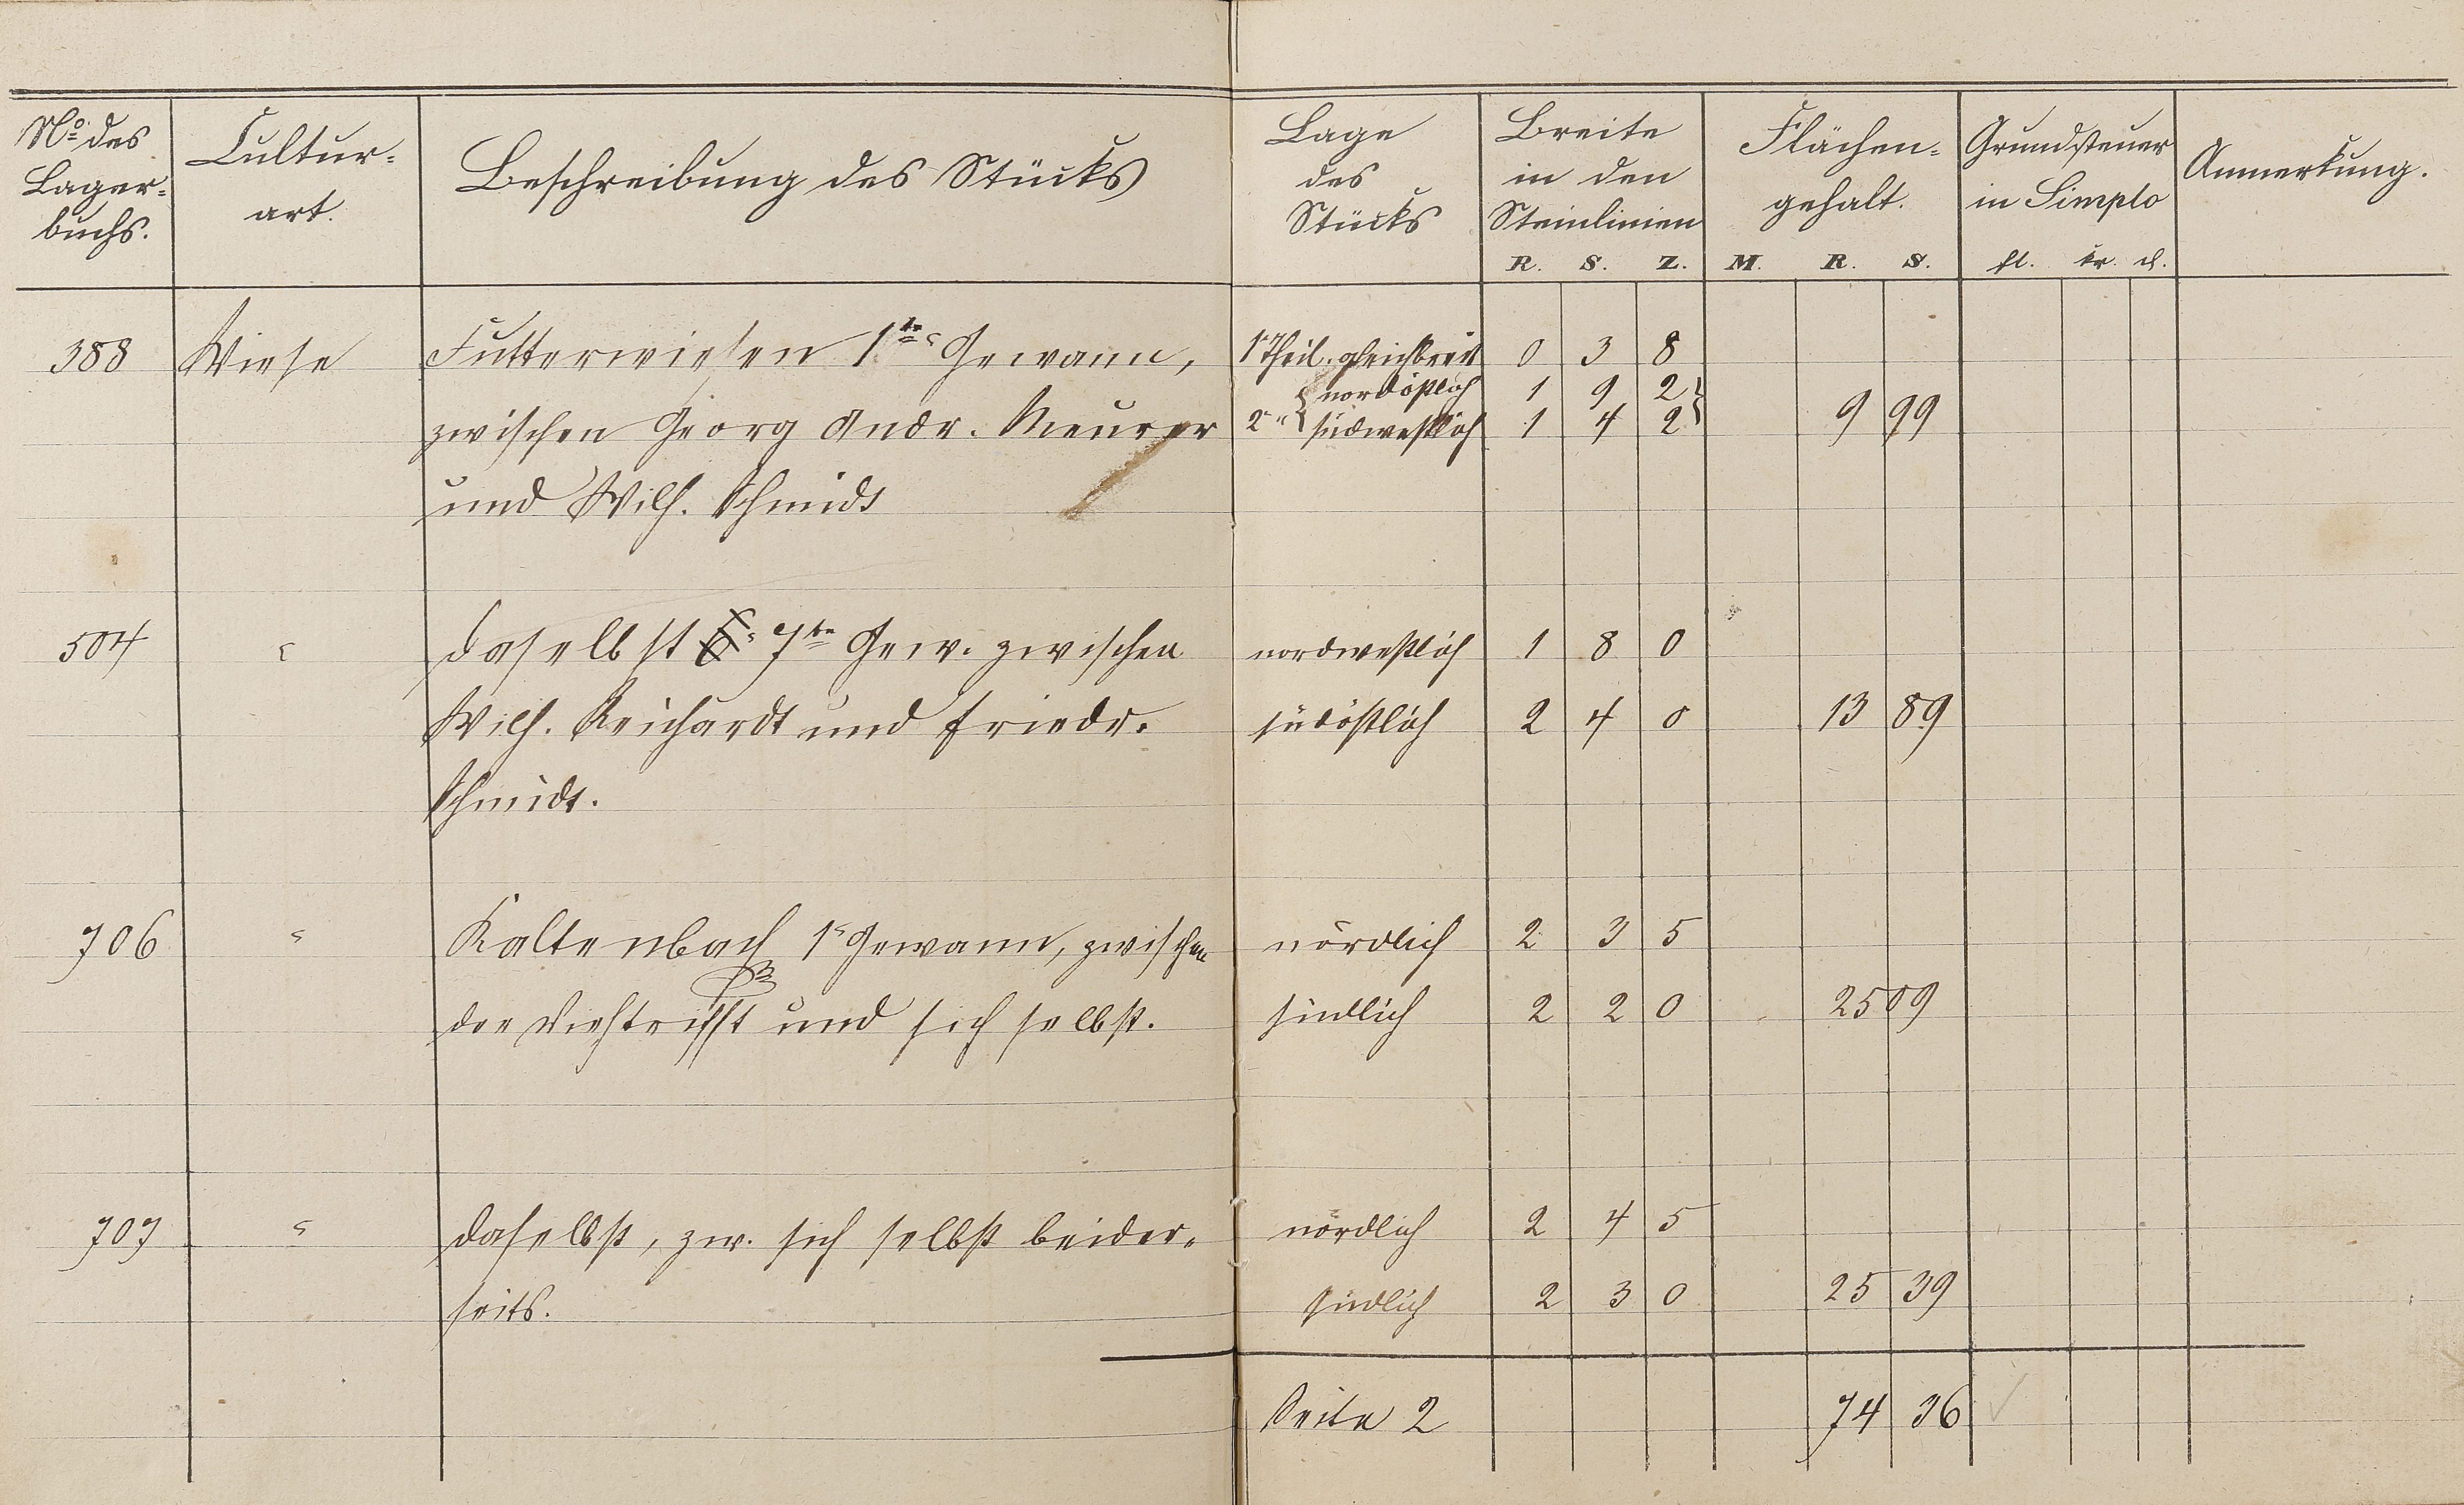 No des Lager= buchs. | Cultur= art. | Beschreibung des Stücks | Lage des Stücks | Breite in den Steinlinien R. S. Z. | Flächen= gehalt. M. R. S. | Grundsteuer in Simplo fl. kr. d. | Anmerkung.
388 Wiese Futterwiesen 1te Gewann, 1r Theil. gleichbreit 0 3 8
nordöstlich 1 9 2
zwischen Georg Andr. Meurer 2r " südwestlich 1 4 2 9 99
und Wilh. Schmidt
504 " daselbst 7te Gew. zwischen nordwestlich 1 8 0
Wilh. Reichardt und Friedr. südöstlich 2 4 0 13 89
Schmidt.
706 " Kaltenbach 1e Gewann, zwischen nördlich 2 3 5
der Viehtrifft und sich selbst. südlich 2 2 0 25 09
707 " daselbst, zw. sich selbst beider= nördlich 2 4 5
seits. südlich 2 3 0 25 39
Seite 2 74 36